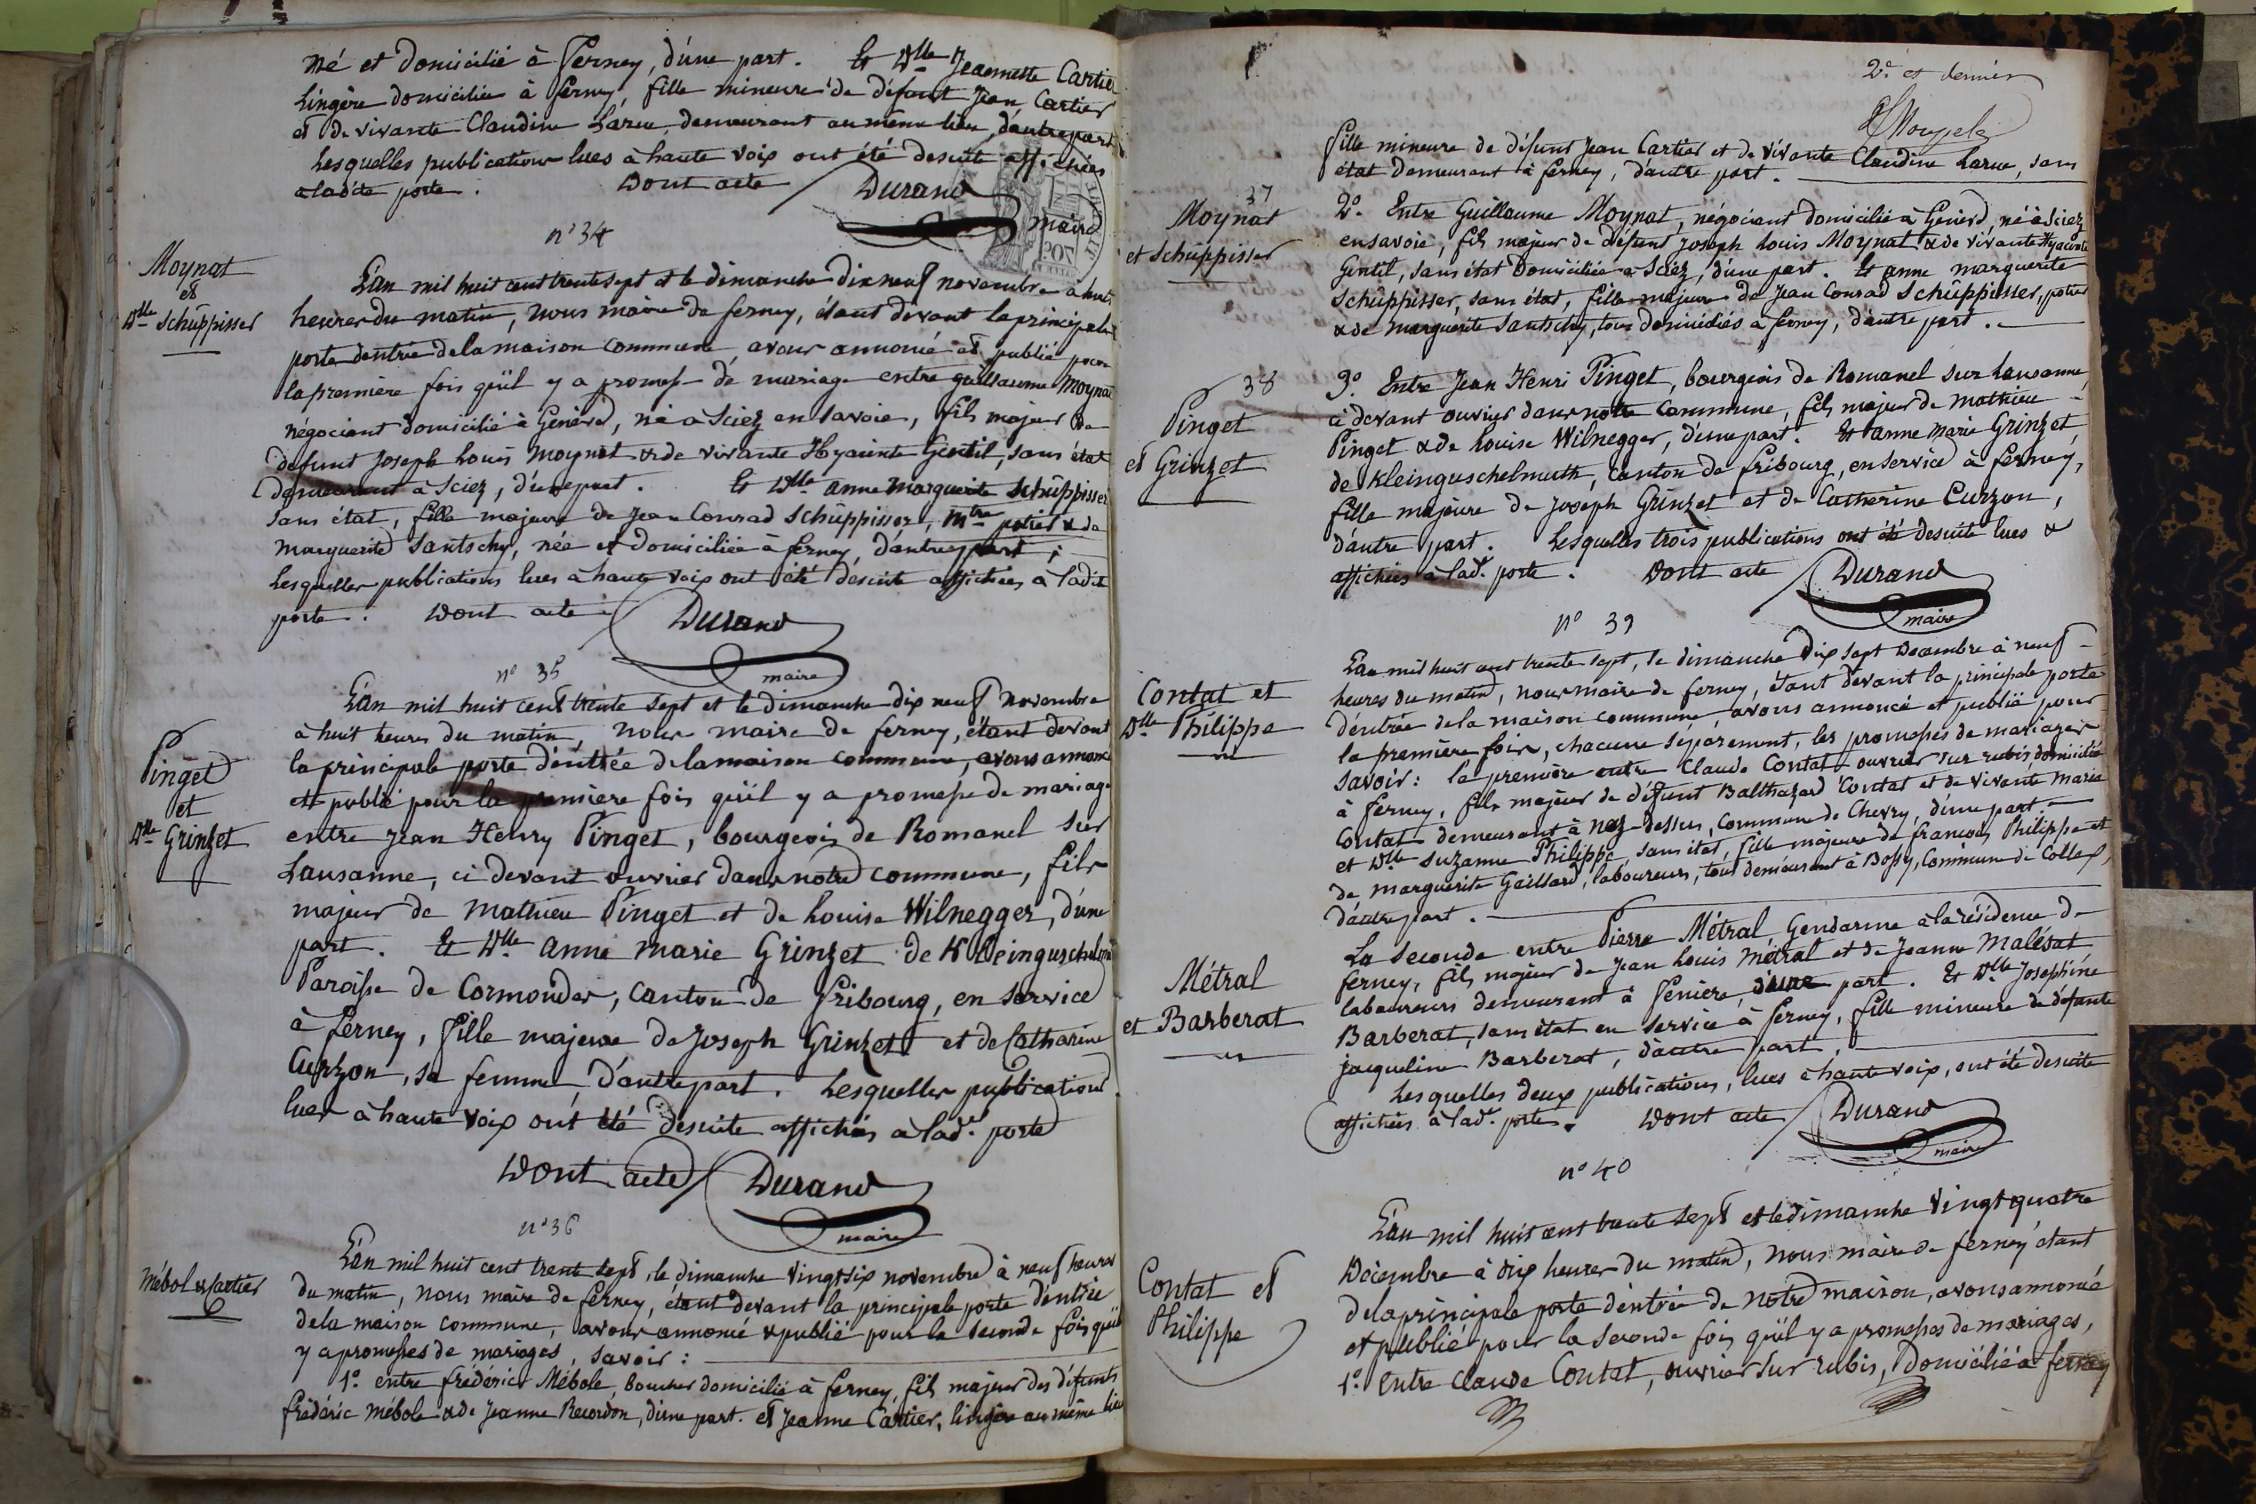 né et domicilié à Ferney, d'une part. Et Dlle Jeannette Cartier
Lingère domiciliée à ferney, fille mineure de défunt Jean Cartier
et de vivante Claudine Larue, demeurant au même lieu, d'autre part
Lesquelles publications lues à haute voix ont été desuite affichées
à ladite porte. Dont acte Durand
maire
n° 34
Moynat
et
Dlle Schûppisser
L'an mil huit cent trente sept et le dimanche dix neuf novembre à huit
heures du matin, nous maire de ferney, étant devant la principale
porte dentrée dela maison commune avons annoncé et publié pour
la première fois qu'il y a promesse de mariage entre guillaume Moynat
négociant domicilié à Genève, né à Sciez en Savoie, fils majeur de
défunt Joseph Louis Moynat & de vivante Hyacinte Gentil, sans état
demeurant à Sciez, d'une part. Et Dlle anne Marguerite Schûppisser
sans état, fille majeure de Jean Conrad Schûppisser, Mtre potier & de
Marguerite Santschy, née et domiciliée à ferney, d'autre part ;
Lesquelles publications lues à haute voix ont été desuite affichées à ladite
porte. Dont acte Durand
maire
n° 35
Pinget
et
Dlle Grinzet
L'an mil huit cent trente sept et le dimanche dix neuf novembre
à huit heures du matin, nous maire de ferney, étant devant
la principale porte d'entrée de la maison commune, avons annoncé
et publié pour la première fois qu'il y a promesse de mariage
entre Jean Henry Pinget, bourgeois de Romanel sur
Lausanne, ci devant ouvrier dans notre commune, fils
majeur de Mathieu Pinget et de Louise Wilnegger, d'une
part. Et Dlle anne Marie Grinzet de Kleinguschelmuth
Paroisse de Cormondes, canton de fribourg, en service
à ferney, fille majeure de Joseph Grinzet et de Catharine
Curzon, sa femme, d'autre part. Lesquelles publications
lues à haute voix ont été desuite affichées à lade porte
Dont acte Durand
maire
n° 36
Mébol & Cartier
L'an mil huit cent trente sept, le dimanche vingt six novembre à neuf heures
du matin, nous maire de ferney, étant devant la principale porte d'entrée
dela maison commune, avons annoncé & publié pour la seconde fois qu'il
y a promesses de mariages, savoir :
1° entre frédéric Mébole, boucher domicilié à ferney, fils majeur des défunts
frédéric Mébole & de Jeanne Recordon, d'une part. et Jeanne Cartier, lingère au même lieu
2e et dernier
fille mineure de défunt Jean Cartier et de vivante Claudine Larue, sans
état demeurant à ferney, d'autre part.
37
Moynat
et Schûppisser
2° Entre Guillaume Moynat, négociant domicilié à Genève, né à Sciez
en savoie, fils majeur de défunt Joseph Louis Moynat & de vivante Hyacinte
Gentil, sans état domiciliée à Sciez, d'une part. Et anne marguerite
Schûppisser, sans état, fille majeure de Jean Conrad Schûppisser, potier
& de Marguerite Santschy, tous domiciliés à ferney, d'autre part.
38
Pinget
et Grinzet
3° Entre Jean Henri Pinget, bourgeois de Romanel sur Lausanne,
ci devant ouvrier dans notre commune, fils majeur de Mathieu
Pinget & de Louise Wilnegger, d'une part. Et anne Marie Grinzet
de Kleinguschelmuth, Canton de fribourg, en service à ferney,
fille majeure de Joseph Grinzet et de Catherine Curzon,
d'autre part. Lesquelles trois publications ont été desuite lues &
affichées à lade porte. Dont acte Durand
maire
n° 39
Contat et
Dlle Philippe
L'an mil huit cent trente sept, le dimanche dix sept Décembre à neuf
heures du matin, nous maire de ferney, étant devant la principale porte
d'entrée dela maison commune, avons annoncé et publié pour
la première fois, chacune séparement, les promesses de mariages
savoir : la première entre Claude Contat ouvrier sur rubis, domicilié
à ferney, fils majeur de défunt Balthazard Contat et de vivante Marie
Contat demeurant à Naz-dessus, commune de Chevry, d'une part
et Dlle Suzanne Philippe, sans état, fille majeure de françois Philippe et
de Marguerite Gaillard, laboureurs, tous demeurant à Bossy, Commune de Collex,
d'autre part.
Métral
et Barberat
La seconde entre Pierre Métral, Gendarme à la résidence de
ferney, fils majeur de Jean Louis Métral et de Jeanne Malésat
laboureurs demeurant à Feniere, d'une part. Et Dlle Joséphine
Barberat, sans état en service à ferney, fille mineure de défunte
jacqueline Barberat, d'autre part.
Lesquelles deux publications, lues à haute voix, ont été desuite
affichées à lade porte. Dont acte Durand
maire
n° 40
Contat et
Philippe
L'an mil huit cent trente sept et le dimanche vingt quatre
Décembre à dix heures du matin, nous maire de ferney étant
dela principale porte d'entrée de notre maison, avons annoncé
et publié pour la seconde fois qu'il y a promesses de mariages,
1° Entre Claude Contat, ouvrier sur rubis, domicilié à ferney